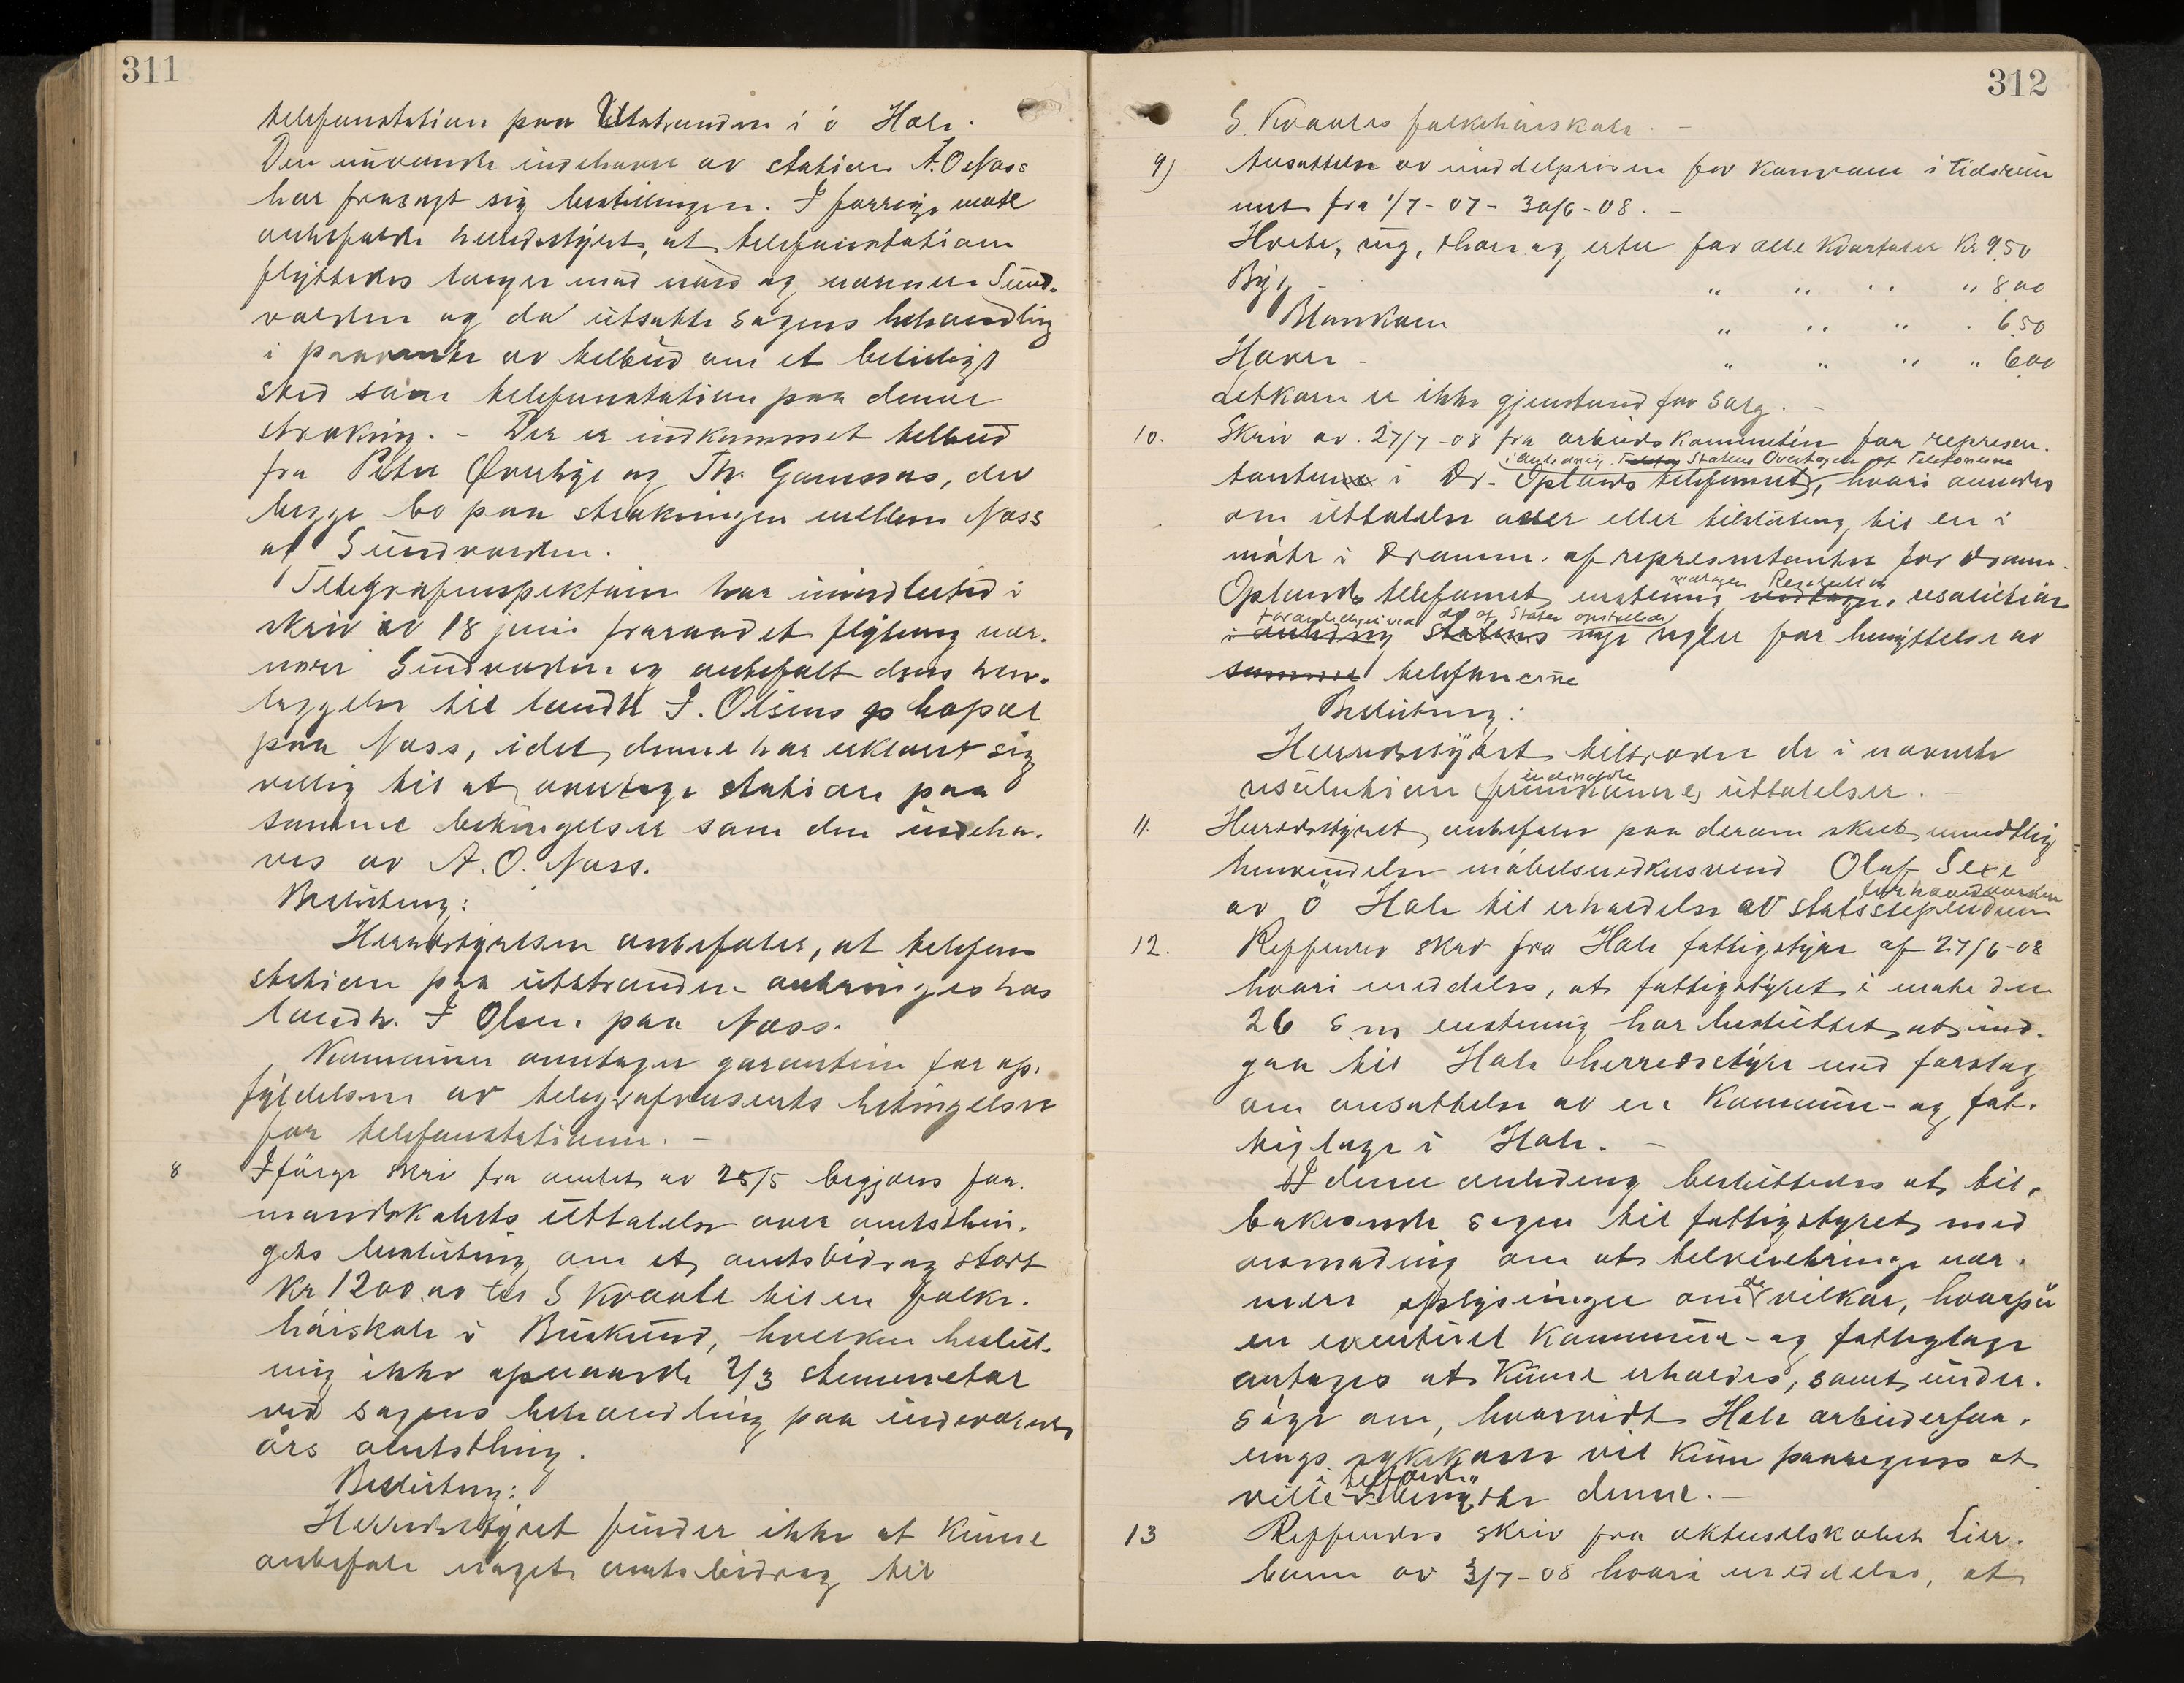 311
telefonstation paa Utstranden i ö Hole.
Den nuværende indehaver av station A. O Næss
har frasagt sig bestillingen. I forrige møte
anbefalte herredstyret, at telefonstationen
flyttedes længer mod nord og nærmere Sund-
volden og da utsatte sagens behandling
i paavente av tilbud om et beleiligt
sted som telefonstation paa denne
strækning. - Der er indkommet tilbud
fra Peter og Th. Gomsnæs, der
begge bo paa strækningen mellem Næss
og Sundvolden.
Telegrafinspektøren har imidlertid i
skriv av 18 juni fraraadet flytning nær-
mere Sundvolden og anbefalt dens hen-
læggelse til landh I. Olsens lokal
paa Næss, idet denne har erklæret sig
villig til at overtage station paa
samme betingelser som den indeha-
ves av A. O. Næss.
Beslutning:
Herredstyrelsen anbefaler, at telefon
station paa utstranden anbringes hos
landh. I Olsen paa Næss.
Kommunen overtager garantien for op-
fyldelsen av telegrafvæsenets betingelser
for telefonstationen. -
8 Ifølge skriv fra amtet av 25/5 begjæres for-
mandskabets uttalelse over amtsthin-
gets beslutning om et amtsbidrag stort
Kr 1200.00 til S Kvaale til en folke-
høiskole i Buskerud, hvilken beslut-
ning ikke opnaaede 2/3 stemmetal
ved sagens behandling paa indeværende
års amtsthing.
Beslutning:
Herredstyret finder ikke at kunne
anbefale noget amtsbidrag til
312
S. Kvaales folkehøiskole. -
9) Ansættelse av middelprisen for kornvarer i tidsrum
met fra 1/7-07 - 30/6-08. -
Hvete, rug, og erter for alle kvartaler Kr 9.50
Byg - " " " " 8.00
Blankorn " " " . 6.50
Havre - " " " " 6.00
Letkorn er ikke gjenstand for salg. -
10. Skriv av 27/7-08 fra arbeidskommitéen for represen-
i Anledning Statens Overtagen af Telefonerne
tanterne i Dr. Oplands telefonnet, hvori anmodes
om uttalelse over eller tilslutning til en i
møte i Dramm. af representanter for Dramm.
vedtagen Resolution
Oplands telefonnet enstemmig vedtagen resolution
i anledning statens nye regler for benyttelse av
telefonerne
Beslutning:
Herredstyret tiltræder de i nævnte
indeholdte
resolution fremkomne uttalelser. -
11. Herredstyret anbefaler paa derom sket mundtlig
henvendelse møbelsnedkersvend Olaf Sexe
for haandværkere
av ö Hole til erholdelse av statsstipendium
12. Refferertes skriv fra Hole fattigstyre af 27/6-08
hvori meddeles, at fattigstyret i møte den
26 s. m enstemmig har besluttet at ind-
gaa til Hole herredsstyre med forslag
om ansættelse av en kommune- og fat-
tiglæge i Hole. -
I denne anledning besluttedes at til-
bakesende sagen til fattigstyret med
anmodning om at tilveiebringe nær-
mere oplysninger om de vilkår, hvorpå
en eventuel kommune- og fattiglæge
antages at kunne erholdes, samt under-
søge om, hvorvidt Hole arbeiderfor-
enings sykekasse vil kunne paaregnes at
i tilfælde
ville denne. -
13 Refferertes skriv fra aktieselskabet Lier-
banen av 3/7-08 hvori meddeles, at